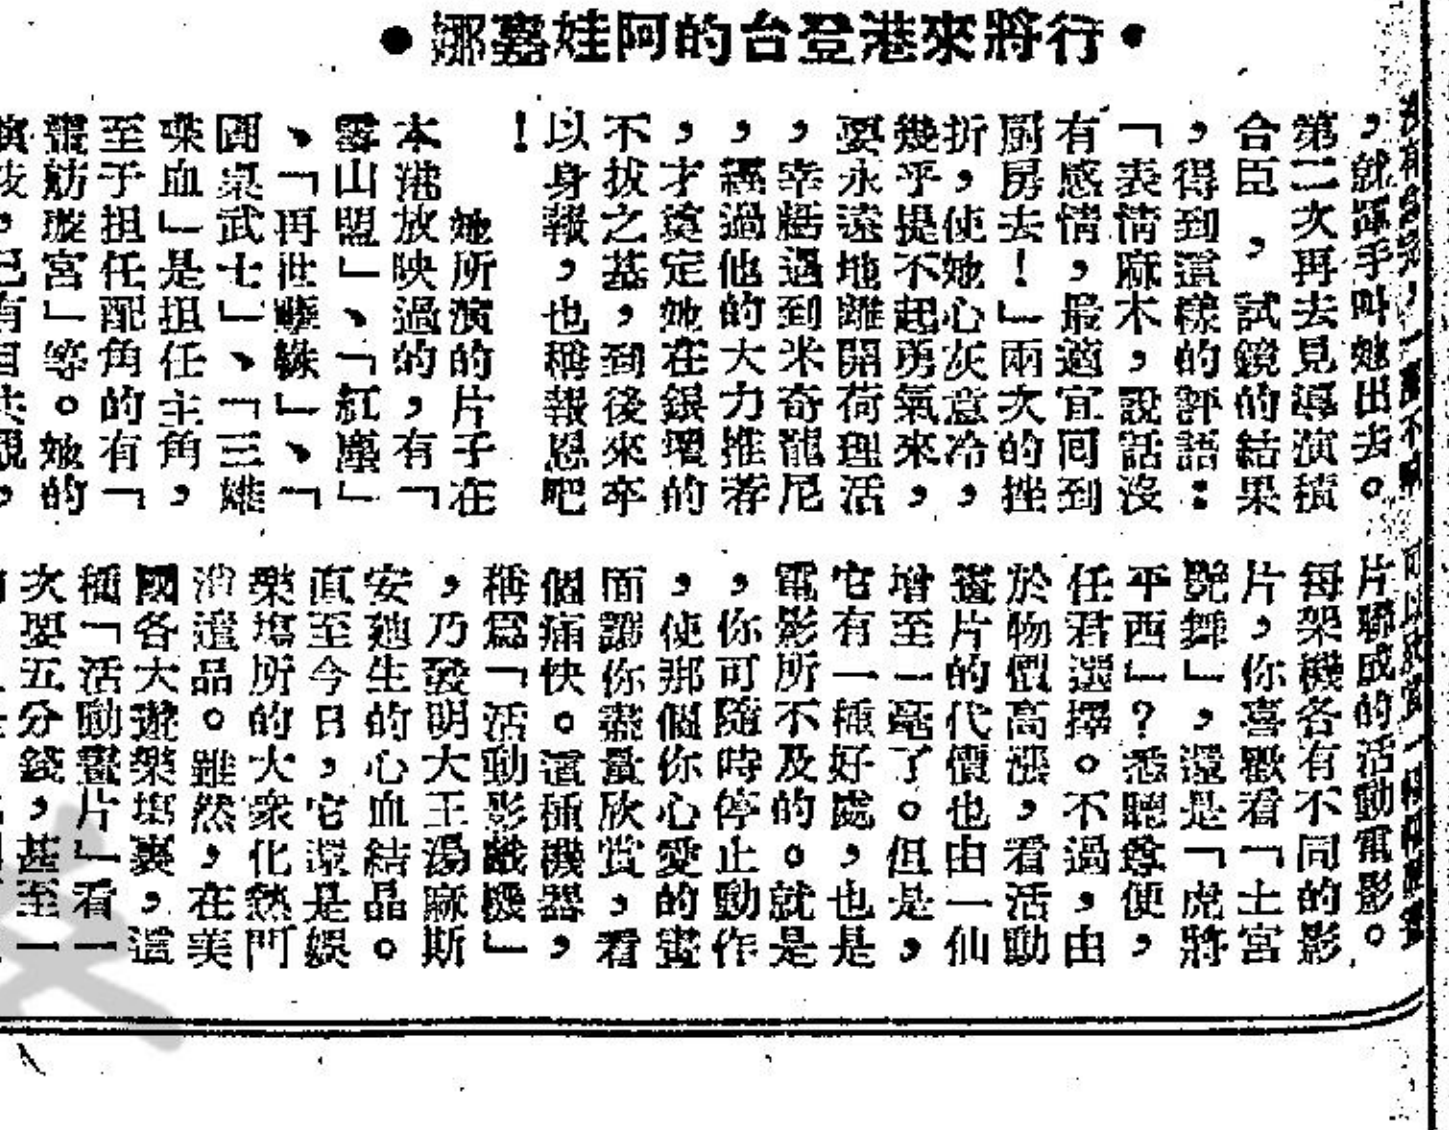 ●行將來港登台的阿娃嘉娜●
，就揮手叫她出去。
第二次再去見導演積
合臣，試鏡的結果
，得到這樣的評語：
「表情麻木，說話沒
有感情，最適宜囘到
厨房去！」兩次的挫
折，使她心灰意冷，
幾乎提不起勇氣來，
要永遠地離開荷理活
，幸遇到米奇龍尼
，經過他的大力推荐
，才奠定她在銀壇的
不拔之基，到後來卒
以身報，也稱報恩吧
！
她所演的片子在
本港放映過的，有「
雪山盟」、「紅塵」
、「再世孽緣」、「
圓桌武士」、「三雄
喋血」是担任主角，
至于担任配角的有「
舫璇宮」等。她的
演技，已有目共覩，
片聯成的活動電影。
每架機各有不同的影
片，你喜歡看「土宮
艷舞」，還是「虎將
平西」？悉聽尊便，
任君選擇。不過，由
於物價高漲，看活動
畫片的代價也由一仙
增至一毫了。但是，
它有一種好處，也是
電影所不及的。就是
，你可隨時停止動作
，使那個你心愛的畫
面讓你盡量欣賞，看
個痛快。這種機器，
稱爲「活動影戲機」
，乃發明大王湯麻斯
安廸生的心血結晶。
直至今日，它還是娛
樂塲所的大衆化熱門
消遣品。雖然，在美
國各大遊樂塲裏，這
種「活動畫片」看一
次要五分錢，甚至一